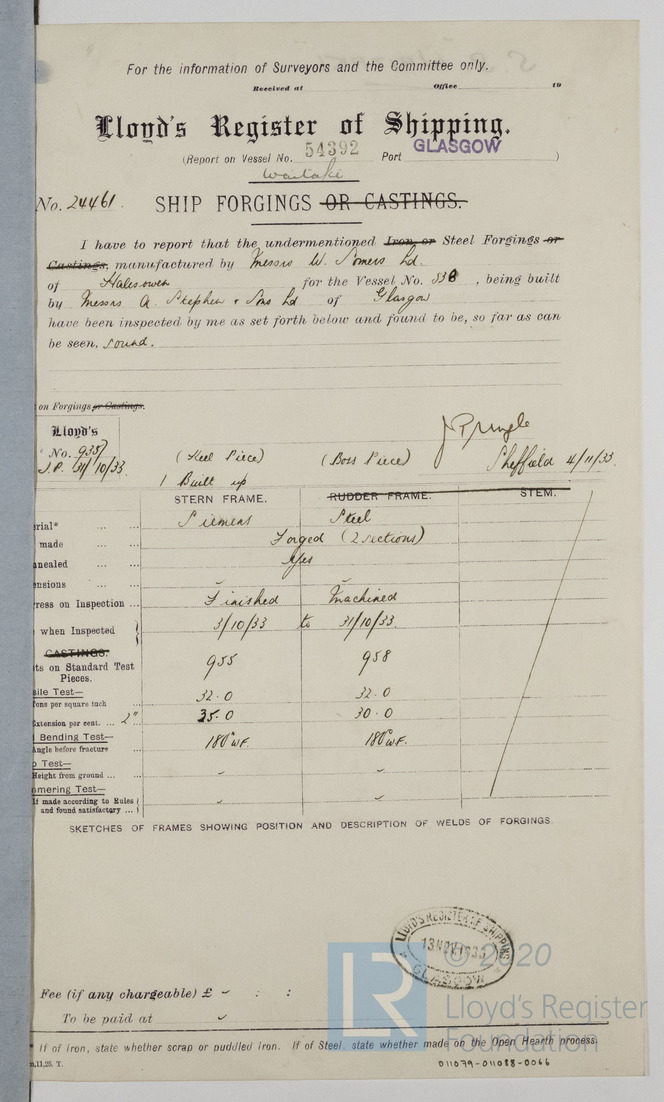 For the information of Surveyors and the Committee only.
Received at Office 19
Lloyd's Register of Shipping.
(Report on Vessel No. 54392 Port GLASGOW )
Waitaki
No. 24461. SHIP FORGINGS OR CASTINGS.
I have to report that the undermentioned Iron or Steel Forgings or
Castings, manufactured by Messrs W. Somers Ld.
of Halesowen for the Vessel No. 538, being built
by Messrs A. Stephen & Sons Ld of Glasgow
have been inspected by me as set forth below and found to be, so far as can
be seen, sound.
on Forgings or Castings.
Lloyd's
No. 9357
J.P. 31/10/33
(Keel Piece) (Boss Piece) J Pringle
Sheffield 4/11/33
1 Built up
STERN FRAME. RUDDER FRAME. STEM.
rial* Siemens Steel
made Forged (2 sections)
nealed Yes
ensions
ress on Inspection Finished Machined
when Inspected 3/10/33 to 31/10/33.
CASTINGS.
ts on Standard Test Pieces. 955 958
sile Test—
Tons per square inch 32.0 32.0
Extension per cent. 2" 35.0 30.0
Bending Test—
Angle before fracture 180° W.F. 180° W.F.
p Test—
Height from ground
mmering Test—
If made according to Rules
and found satisfactory
SKETCHES OF FRAMES SHOWING POSITION AND DESCRIPTION OF WELDS OF FORGINGS.
LLOYD'S REGISTER OF SHIPPING
13 NOV 1933
GLASGOW
© 2020
LR
Lloyd's Register
Foundation
Fee (if any chargeable) £ : :
To be paid at
* If of Iron, state whether scrap or puddled Iron. If of Steel, state whether made on the Open Hearth process.
m,11,25, T.
011079-011088-0066